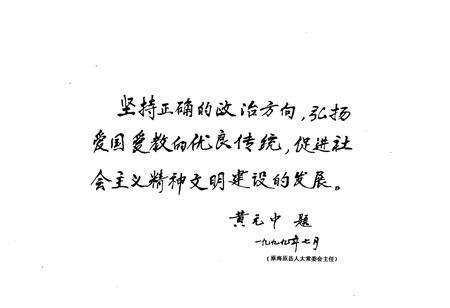 坚持正确的政治方向,弘扬
爱国爱教的优良传统,促进社
会主义精神文明建设的发展。
黄元中 题
一九九九年七月
(原海原县人大常委会主任)